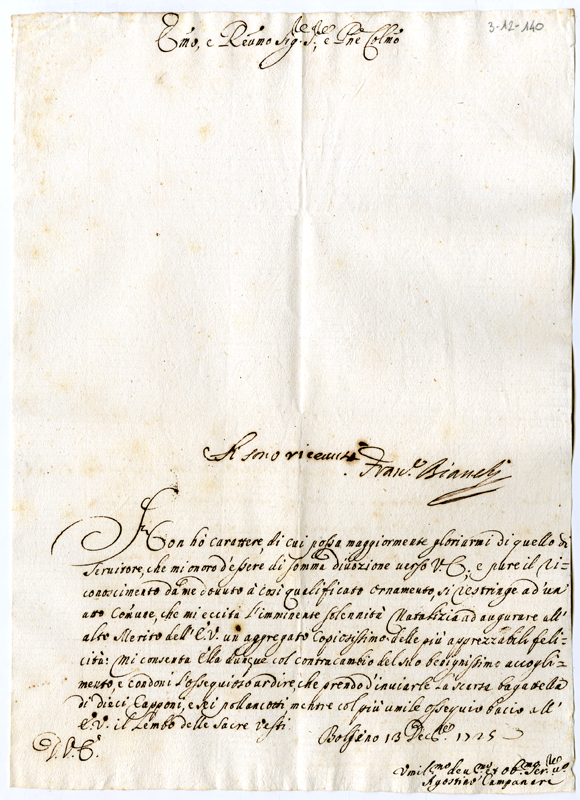 3-12-140
Emo, e Reumo Sig.re Sre, e Pne Colmo
Si sono riceuuti
Fran.o Bianchj
Non hò carattere, di cui possa maggiormente gloriarmi di quello di
Seruitore, che mi onoro d'essere di somma diuozione verso V. E., e pure il ri=
conoscimento da me douuto à così qualificato ornamento, si restringe ad un'
atto Comune, che mi eccita l'imminente solennità Natalizia ad augurare all'
alto Merito dell'E. V. un aggregato Copiosissimo delle più apprezzabili feli=
cità: Mi consenta Ella dunque col contracambio del suo benignissimo accogli=
mento, e condoni l'ossequioso ardire, che prendo d'inuiarle la scarsa bagattella
di dieci Capponi, e sei pollancotti mentre col più umile ossequio bacio all'
E. V. il Lembo delle Sacre Vesti.
Bolseno 13 Decbre 1725
D. V. E.
Vmil.mo deu.mo et ob.mo Ser.re
Agostino Campanari